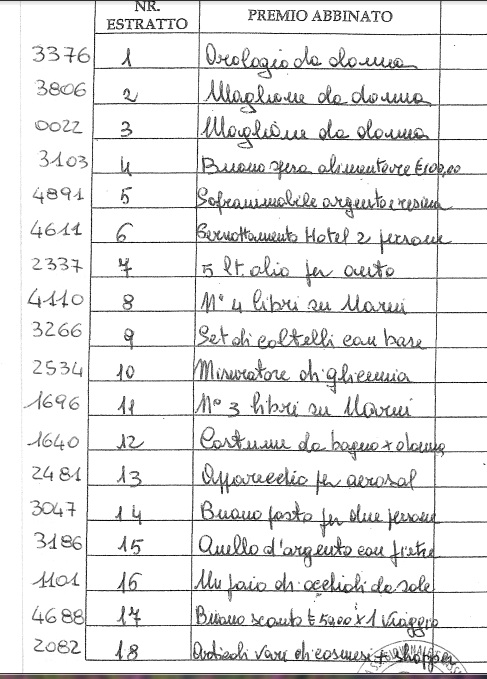 NR. ESTRATTO PREMIO ABBINATO
3376 1 Orologio da donna
3806 2 Maglione da donna
0022 3 Maglione da donna
3103 4 Buono spesa alimentare € 100,00
4891 5 Soprammobile argento e resina
4611 6 Pernottamento Hotel 2 persone
2337 7 5 lt. olio per auto
4110 8 N° 4 libri su Marini
3266 9 Set di coltelli con base
2534 10 Misuratore di glicemia
1696 11 N° 3 libri su Marini
1640 12 Costume da bagno x donna
2481 13 Apparecchio per aerosol
3047 14 Buono pasto per due persone
3186 15 Anello d'argento con pietre
1101 16 Un paio di occhiali da sole
4688 17 Buono sconto € 50,00 x 1 viaggio
2082 18 Articoli vari di cosmesi + shopper